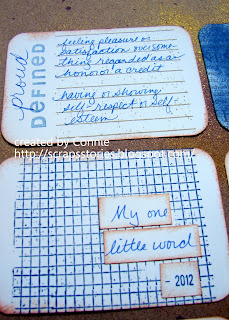 proud
DEFINED
feeling pleasure or
satisfaction over some-
thing regarded as an
honor or a credit
having or showing
self-respect or self-
esteem
created by Connie
http://scrapsstories.blogspot.com/
My one
little word
- 2012